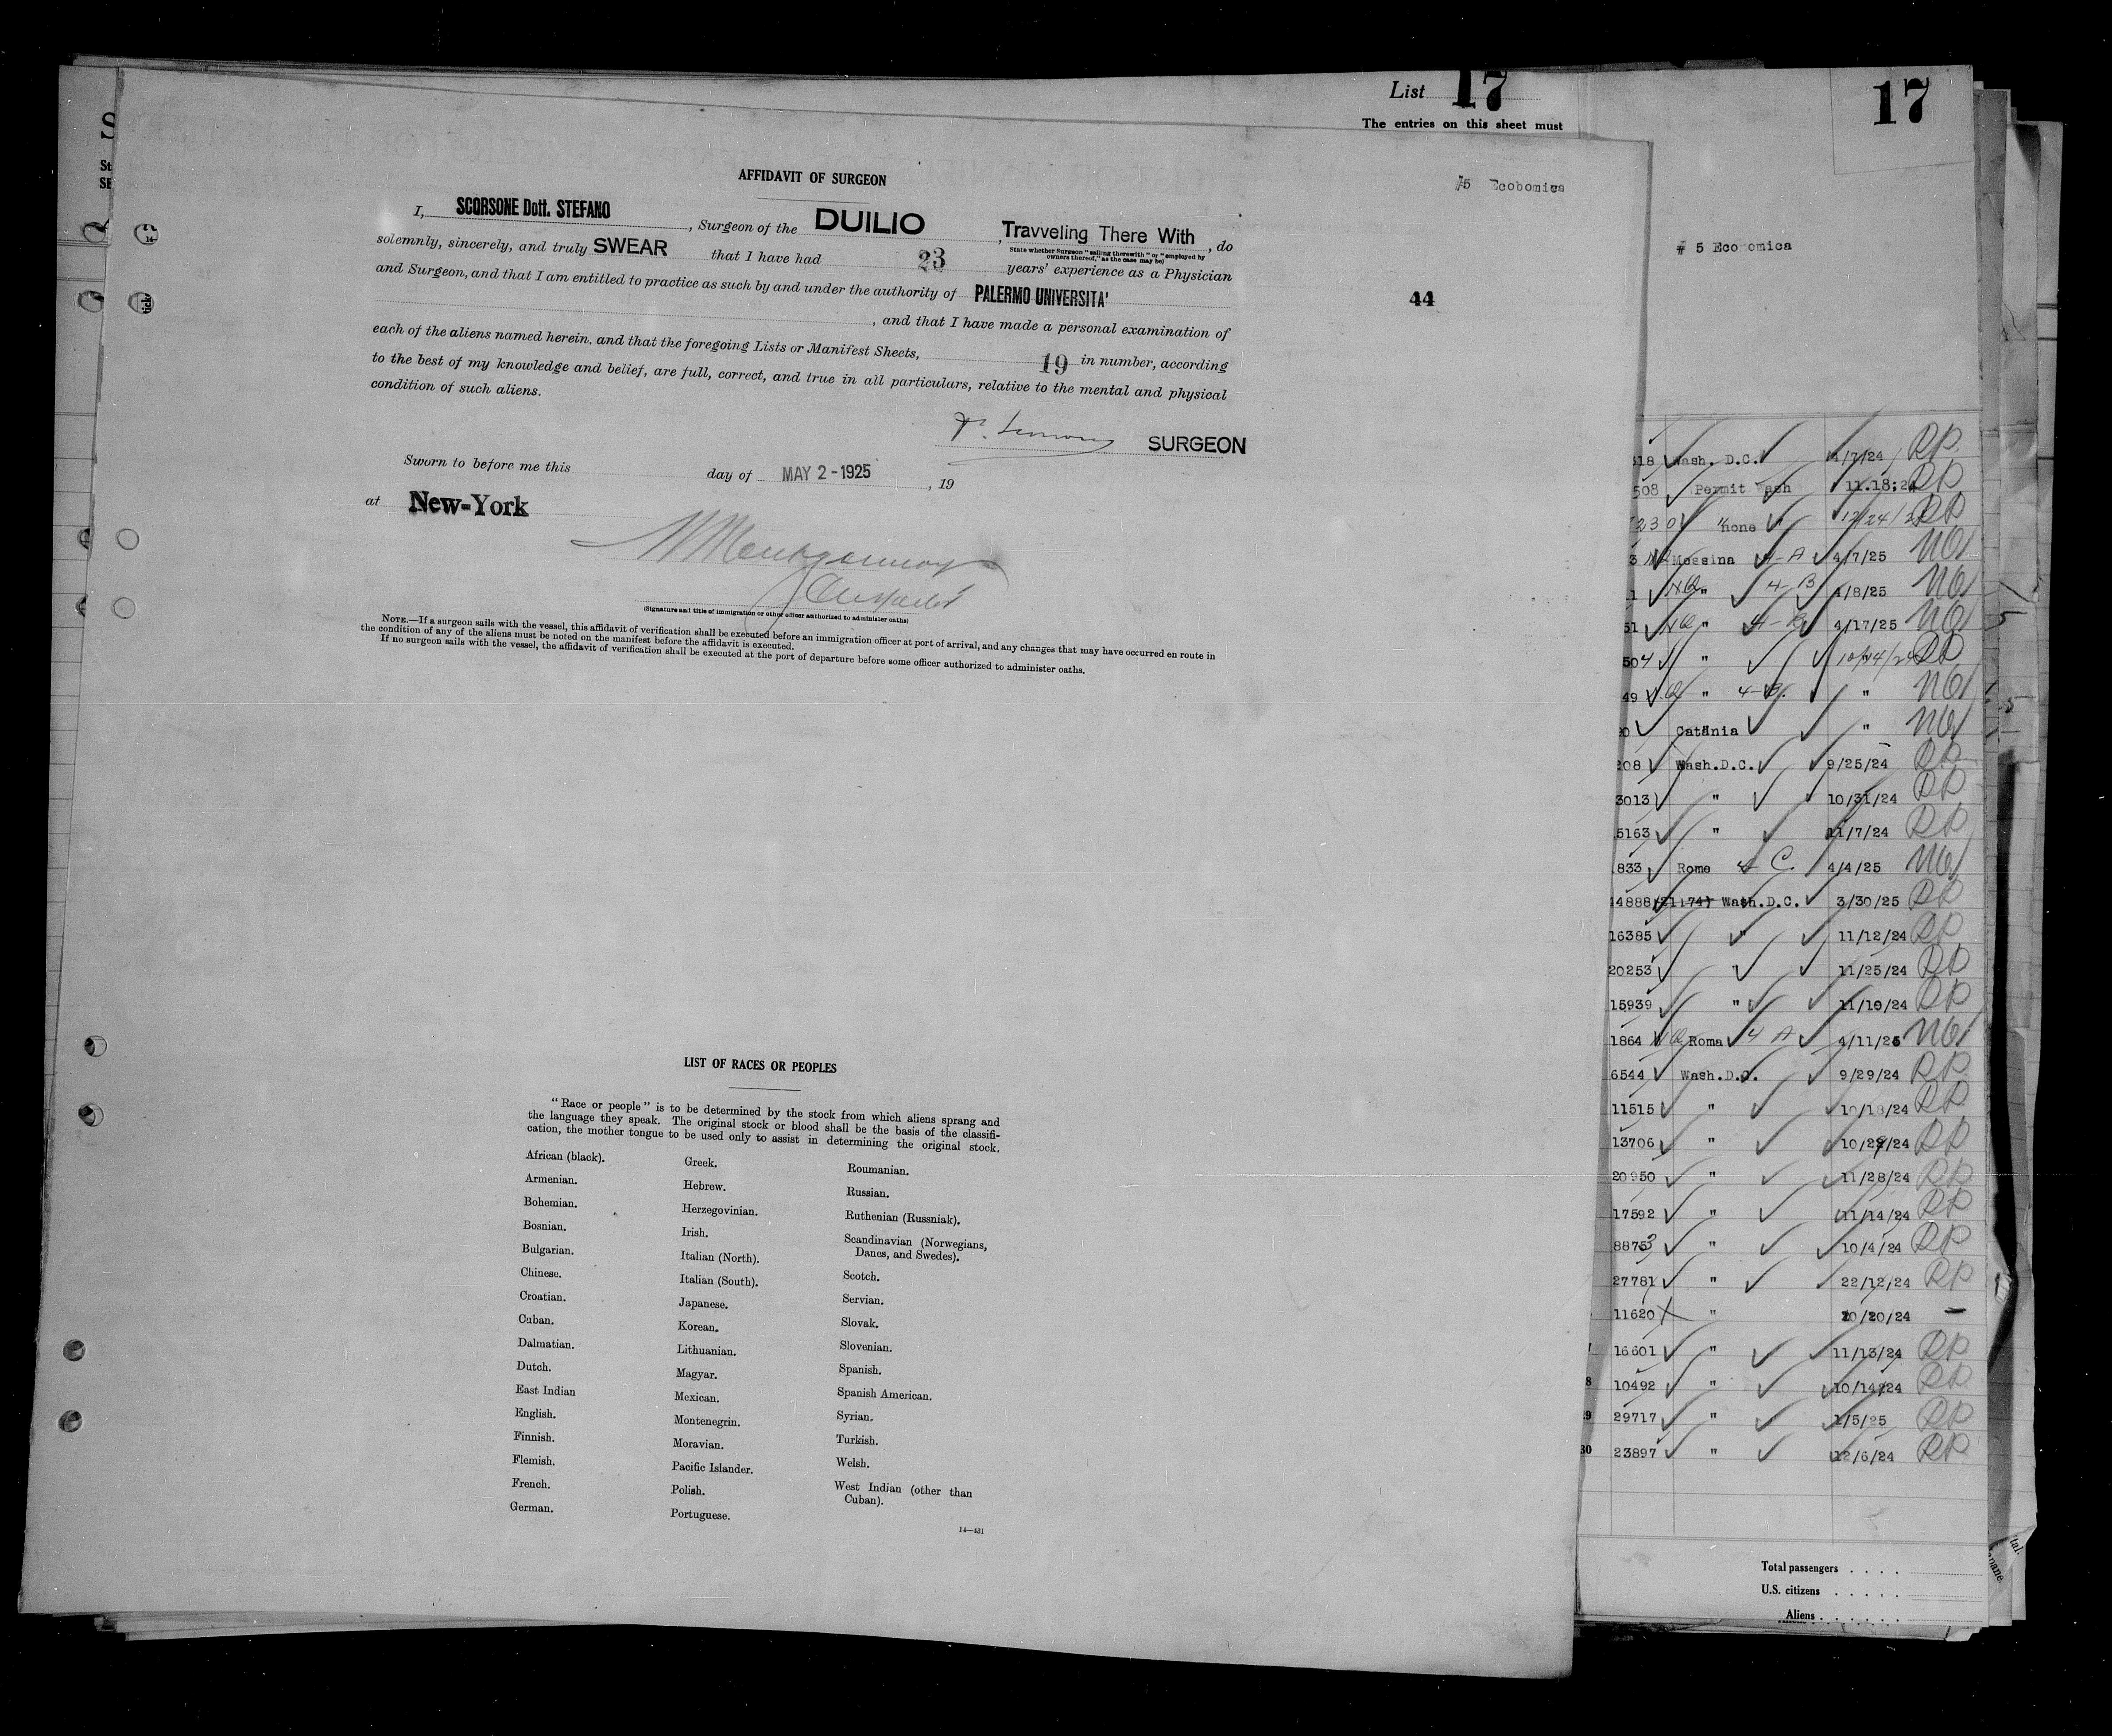 List 17
The entries on this sheet must
17
# 5 Economica
#5 Ecobomica
44
AFFIDAVIT OF SURGEON
I, SCORSONE Dott. STEFANO, Surgeon of the DUILIO, Travveling There With, do
State whether Surgeon "sailing therewith" or "employed by
owners thereof," as the case may be)
solemnly, sincerely, and truly SWEAR that I have had 23 years' experience as a Physician
and Surgeon, and that I am entitled to practice as such by and under the authority of PALERMO UNIVERSITA'
, and that I have made a personal examination of
each of the aliens named herein, and that the foregoing Lists or Manifest Sheets, 19 in number, according
to the best of my knowledge and belief, are full, correct, and true in all particulars, relative to the mental and physical
condition of such aliens.
SURGEON
Sworn to before me this day of MAY 2-1925, 19
at New-York
(Signature and title of immigration or other officer authorized to administer oaths)
NOTE.—If a surgeon sails with the vessel, this affidavit of verification shall be executed before an immigration officer at port of arrival, and any changes that may have occurred en route in
the condition of any of the aliens must be noted on the manifest before the affidavit is executed.
If no surgeon sails with the vessel, the affidavit of verification shall be executed at the port of departure before some officer authorized to administer oaths.
LIST OF RACES OR PEOPLES
"Race or people" is to be determined by the stock from which aliens sprang and
the language they speak. The original stock or blood shall be the basis of the classifi-
cation, the mother tongue to be used only to assist in determining the original stock.
African (black).
Armenian.
Bohemian.
Bosnian.
Bulgarian.
Chinese.
Croatian.
Cuban.
Dalmatian.
Dutch.
East Indian
English.
Finnish.
Flemish.
French.
German.
Greek.
Hebrew.
Herzegovinian.
Irish.
Italian (North).
Italian (South).
Japanese.
Korean.
Lithuanian.
Magyar.
Mexican.
Montenegrin.
Moravian.
Pacific Islander.
Polish.
Portuguese.
Roumanian.
Russian.
Ruthenian (Russniak).
Scandinavian (Norwegians,
Danes, and Swedes).
Scotch.
Servian.
Slovak.
Slovenian.
Spanish.
Spanish American.
Syrian.
Turkish.
Welsh.
West Indian (other than
Cuban).
14—431
518 Wash. D.C. 4/7/24 RP
508 Permit Wash 11.18;24 RP
230 none 12/24/24 RP
3 NQ Messina 4-A 4/7/25 NQ
1 NQ " 4-B 4/8/25 NQ
51 NQ " 4/17/25 NQ
504 " 10/14/24 RP
49 " " NQ
Catania " NQ
208 Wash.D.C. 9/25/24 RP
3013 " 10/31/24 RP
5163 " 11/7/24 RP
833 Rome 4 C. 4/4/25 NQ
14888 (21174) Wash.D.C. 3/30/25 RP
16385 " 11/12/24 RP
20253 " 11/25/24 RP
15939 " 11/10/24 RP
1864 NQ Roma 4 A 4/11/25 NQ
6544 Wash.D.C. 9/29/24 RP
11515 " 10/18/24 RP
13706 " 10/29/24 RP
20950 " 11/28/24 RP
17592 " 11/14/24 RP
8873 " 10/4/24 RP
27781 " 22/12/24 RP
11620 X " 20/20/24 -
16601 " 11/13/24 RP
8 10492 " 10/14/24 RP
29717 " 1/5/25 RP
30 23897 " 12/6/24 RP
Total passengers . . . .
U.S. citizens . . . . .
Aliens . . . . . .